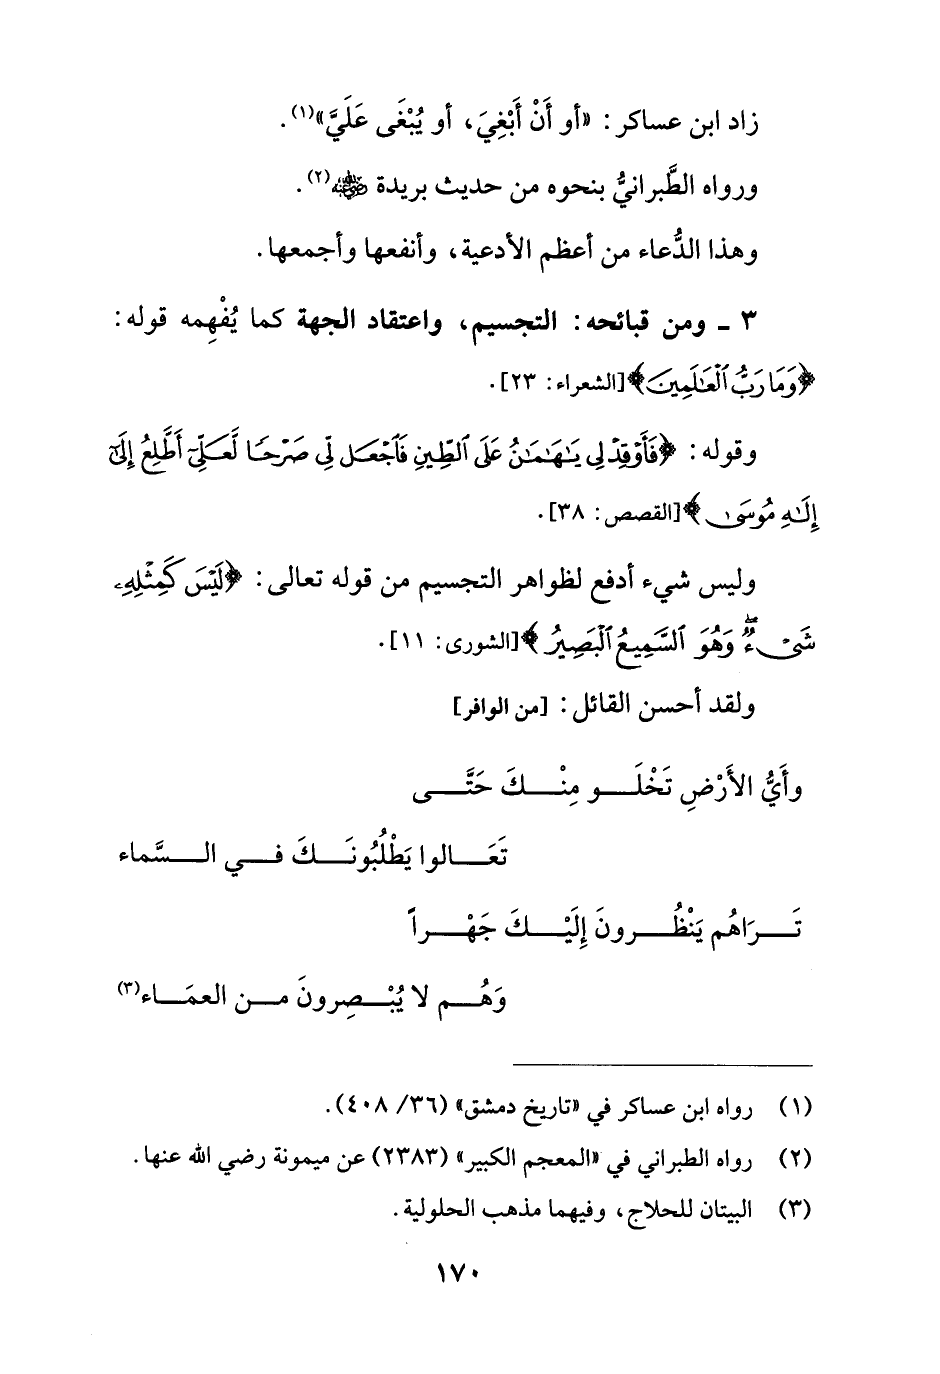 زاد ابن عساكر: «أو أَنْ أَبْغِيَ، أو يُبْغَى عَلَيَّ»(١).
ورواه الطَّبرانيُّ بنحوه من حديث بريدة رضي الله عنه(٢).
وهذا الدُّعاء من أعظم الأدعية، وأنفعها وأجمعها.
٣ - ومن قبائحه: التجسيم، واعتقاد الجهة كما يُفْهِمه قوله:
﴿وَمَا رَبُّ ٱلْعَٰلَمِينَ﴾[الشعراء: ٢٣].
وقوله: ﴿فَأَوْقِدْ لِى يَٰهَٰمَٰنُ عَلَى ٱلطِّينِ فَٱجْعَل لِّى صَرْحًا لَّعَلِّىٓ أَطَّلِعُ إِلَىٰٓ
إِلَٰهِ مُوسَىٰ﴾[القصص: ٣٨].
وليس شيء أدفع لظواهر التجسيم من قوله تعالى: ﴿لَيْسَ كَمِثْلِهِۦ
شَىْءٌ ۖ وَهُوَ ٱلسَّمِيعُ ٱلْبَصِيرُ﴾[الشورى: ١١].
ولقد أحسن القائل: [من الوافر]
وأَيُّ الأَرْضِ تَخْلَـــو مِنْـــكَ حَتَّـــى
تَعَـــالوا يَطْلُبُونَـــكَ فـــي الـــسَّماء
تَـــرَاهُم يَنْظُـــرونَ إِلَيْـــكَ جَهْـــراً
وَهُـــم لا يُبْـــصِرونَ مـــن العمَـــاء(٣)
(١) رواه ابن عساكر في «تاريخ دمشق» (٣٦/ ٤٠٨).
(٢) رواه الطبراني في «المعجم الكبير» (٢٣٨٣) عن ميمونة رضي الله عنها.
(٣) البيتان للحلاج، وفيهما مذهب الحلولية.
١٧٠